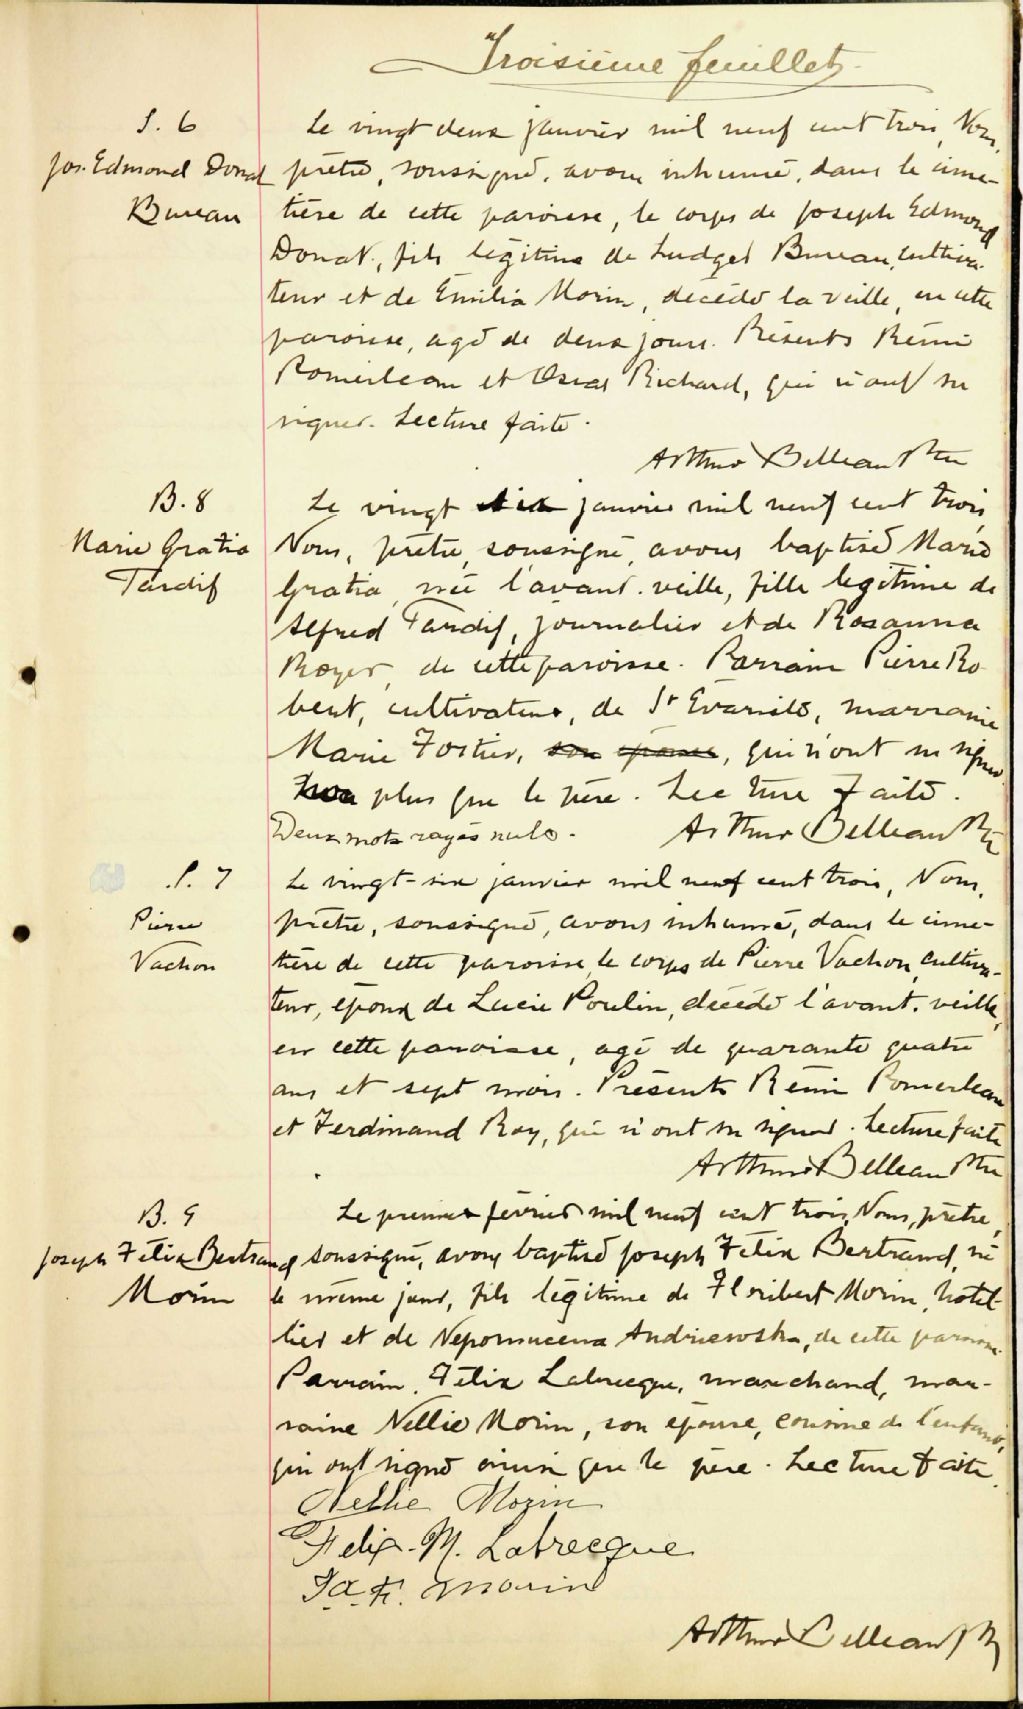 Troisième feuillet
S. 6
Jos. Edmond Donat
Bureau
Le vingt deux janvier mil neuf cent trois, Nous,
prêtre, soussigné, avons inhumé, dans le cime-
tière de cette paroisse, le corps de Joseph Edmond
Donat, fils légitime de Ludget Bureau, cultiva-
teur et de Emilia Morin, décédé la veille, en cette
paroisse, agé de deux jours. Présents Rémi
Pomerleau et Oscar Richard, qui n'ont su
signer. Lecture faite.
Arthur Belleau Ptre
B. 8
Marie Gratia
Tardif
Le vingt six janvier mil neuf cent trois,
Nous, prêtre, soussigné, avons baptisé Marie
Gratia, née l'avant-veille, fille légitime de
Alfred Tardif, journalier et de Rosanna
Royer, de cette paroisse. Parrain Pierre Ro-
bert, cultivateur, de St Evariste, marraine
Marie Fortier, son épouse, qui n'ont su signer
non plus que le père. Lecture faite.
Deux mots rayés nuls.
Arthur Belleau Ptre
S. 7
Pierre
Vachon
Le vingt-six janvier mil neuf cent trois, Nous,
prêtre, soussigné, avons inhumé, dans le cime-
tière de cette paroisse, le corps de Pierre Vachon, cultiva-
teur, époux de Lucie Poulin, décédé l'avant-veille,
en cette paroisse, agé de quarante quatre
ans et sept mois. Présents Rémi Pomerleau
et Ferdinand Roy, qui n'ont su signer. Lecture faite
Arthur Belleau Ptre
B. 9
Joseph Félix Bertrand
Morin
Le premier février mil neuf cent trois, Nous, prêtre,
soussigné, avons baptisé Joseph Félix Bertrand, né
le même jour, fils légitime de Floribert Morin, hotel-
lier et de Nepomucena Andriewska, de cette paroisse.
Parrain, Félix Labrecque, marchand, mar-
raine Nellie Morin, son épouse, cousine de l'enfant,
qui ont signé ainsi que le père. Lecture faite.
Nellie Morin
Felix-M. Labrecque
F. Morin
Arthur Belleau Ptre